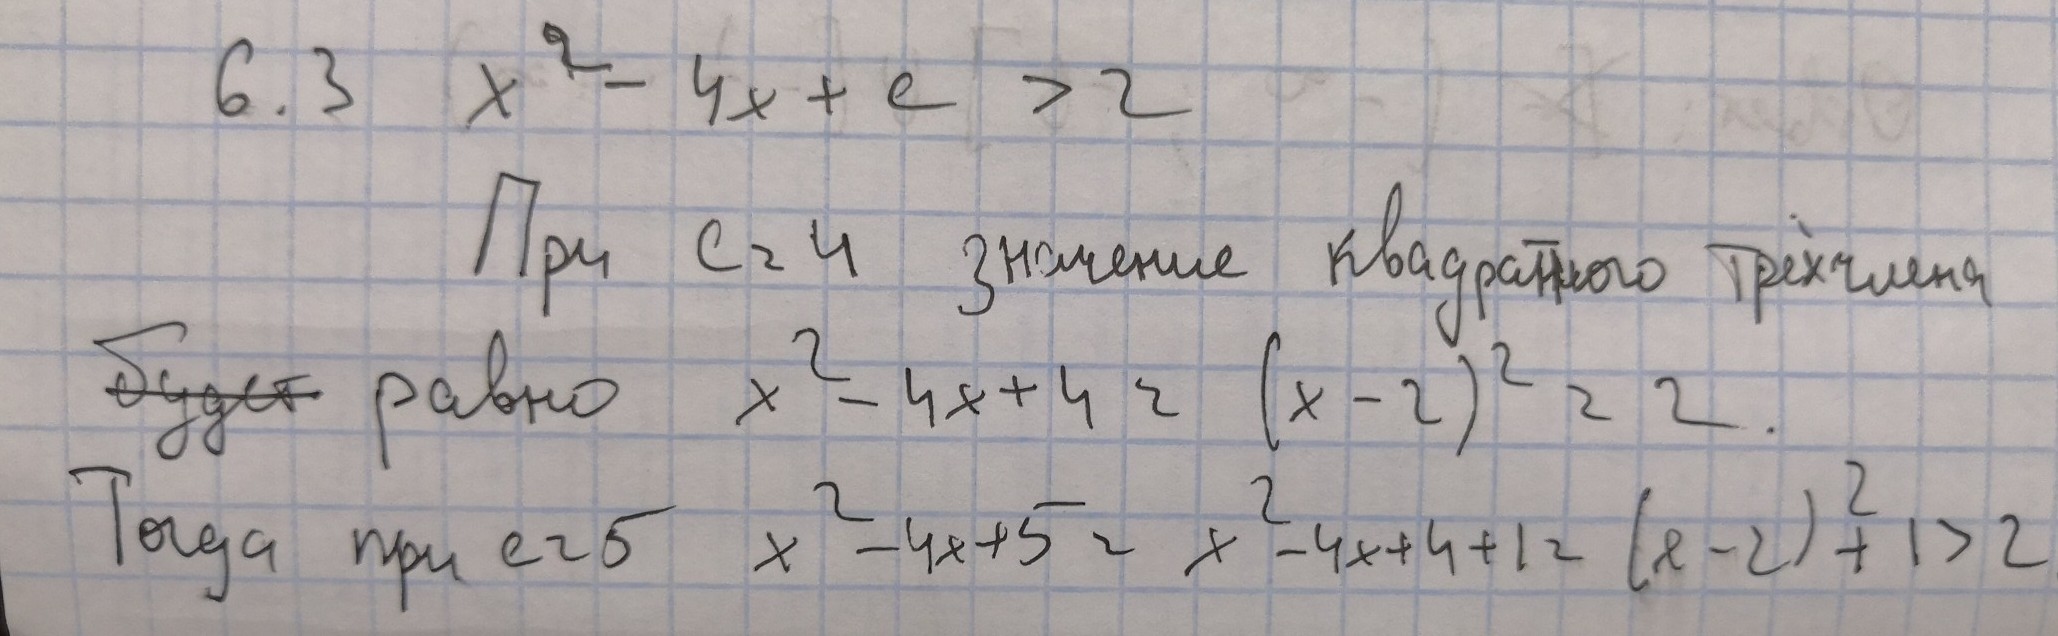 6.3 x² - 4x + c > 2
При c = 4 значение квадратного трёхчлена
будет равно x² - 4x + 4 = (x - 2)² = 2.
Тогда при c = 5 x² - 4x + 5 = x² - 4x + 4 + 1 = (x - 2)² + 1 > 2